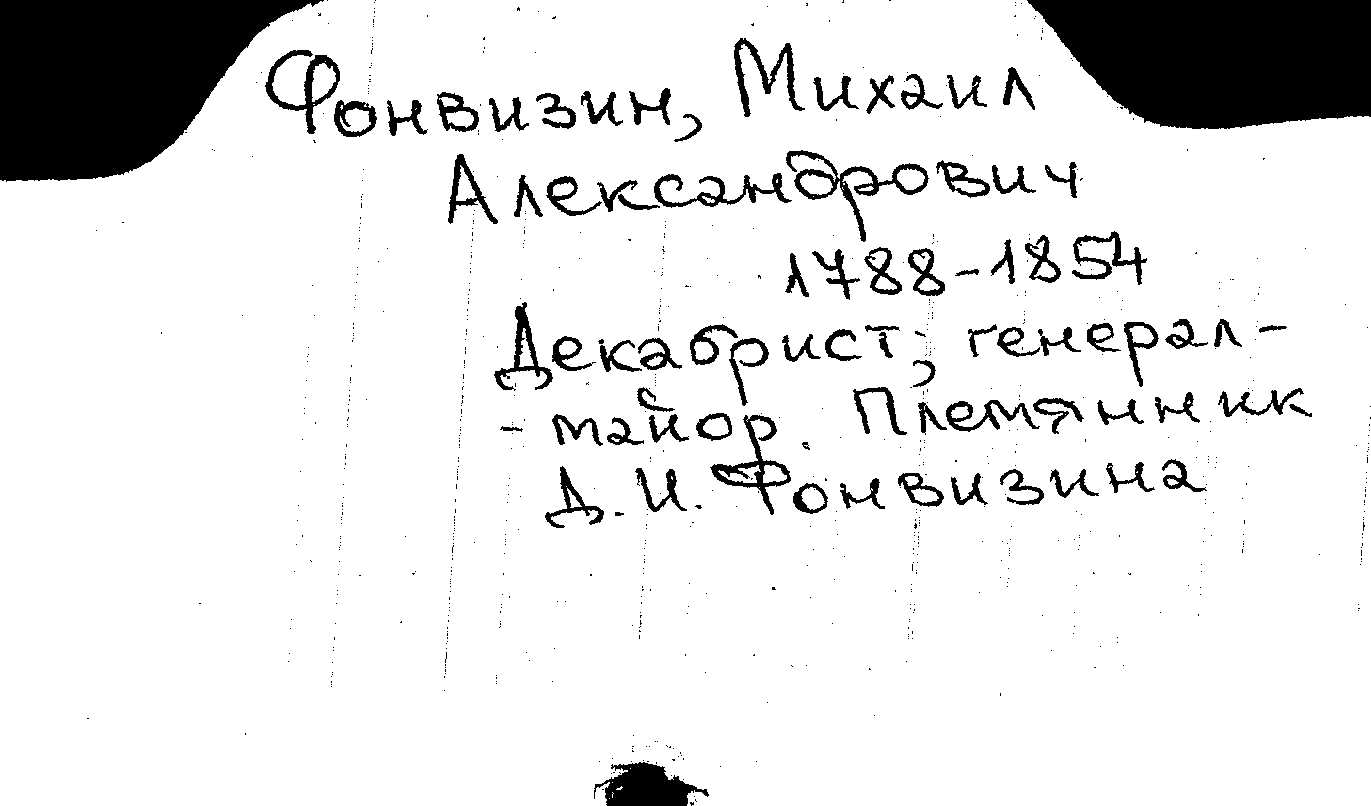 Фонвизин, Михаил
Александрович
1788-1854
Декабрист; генерал-
- майор. Племянник
Д. И. Фонвизина